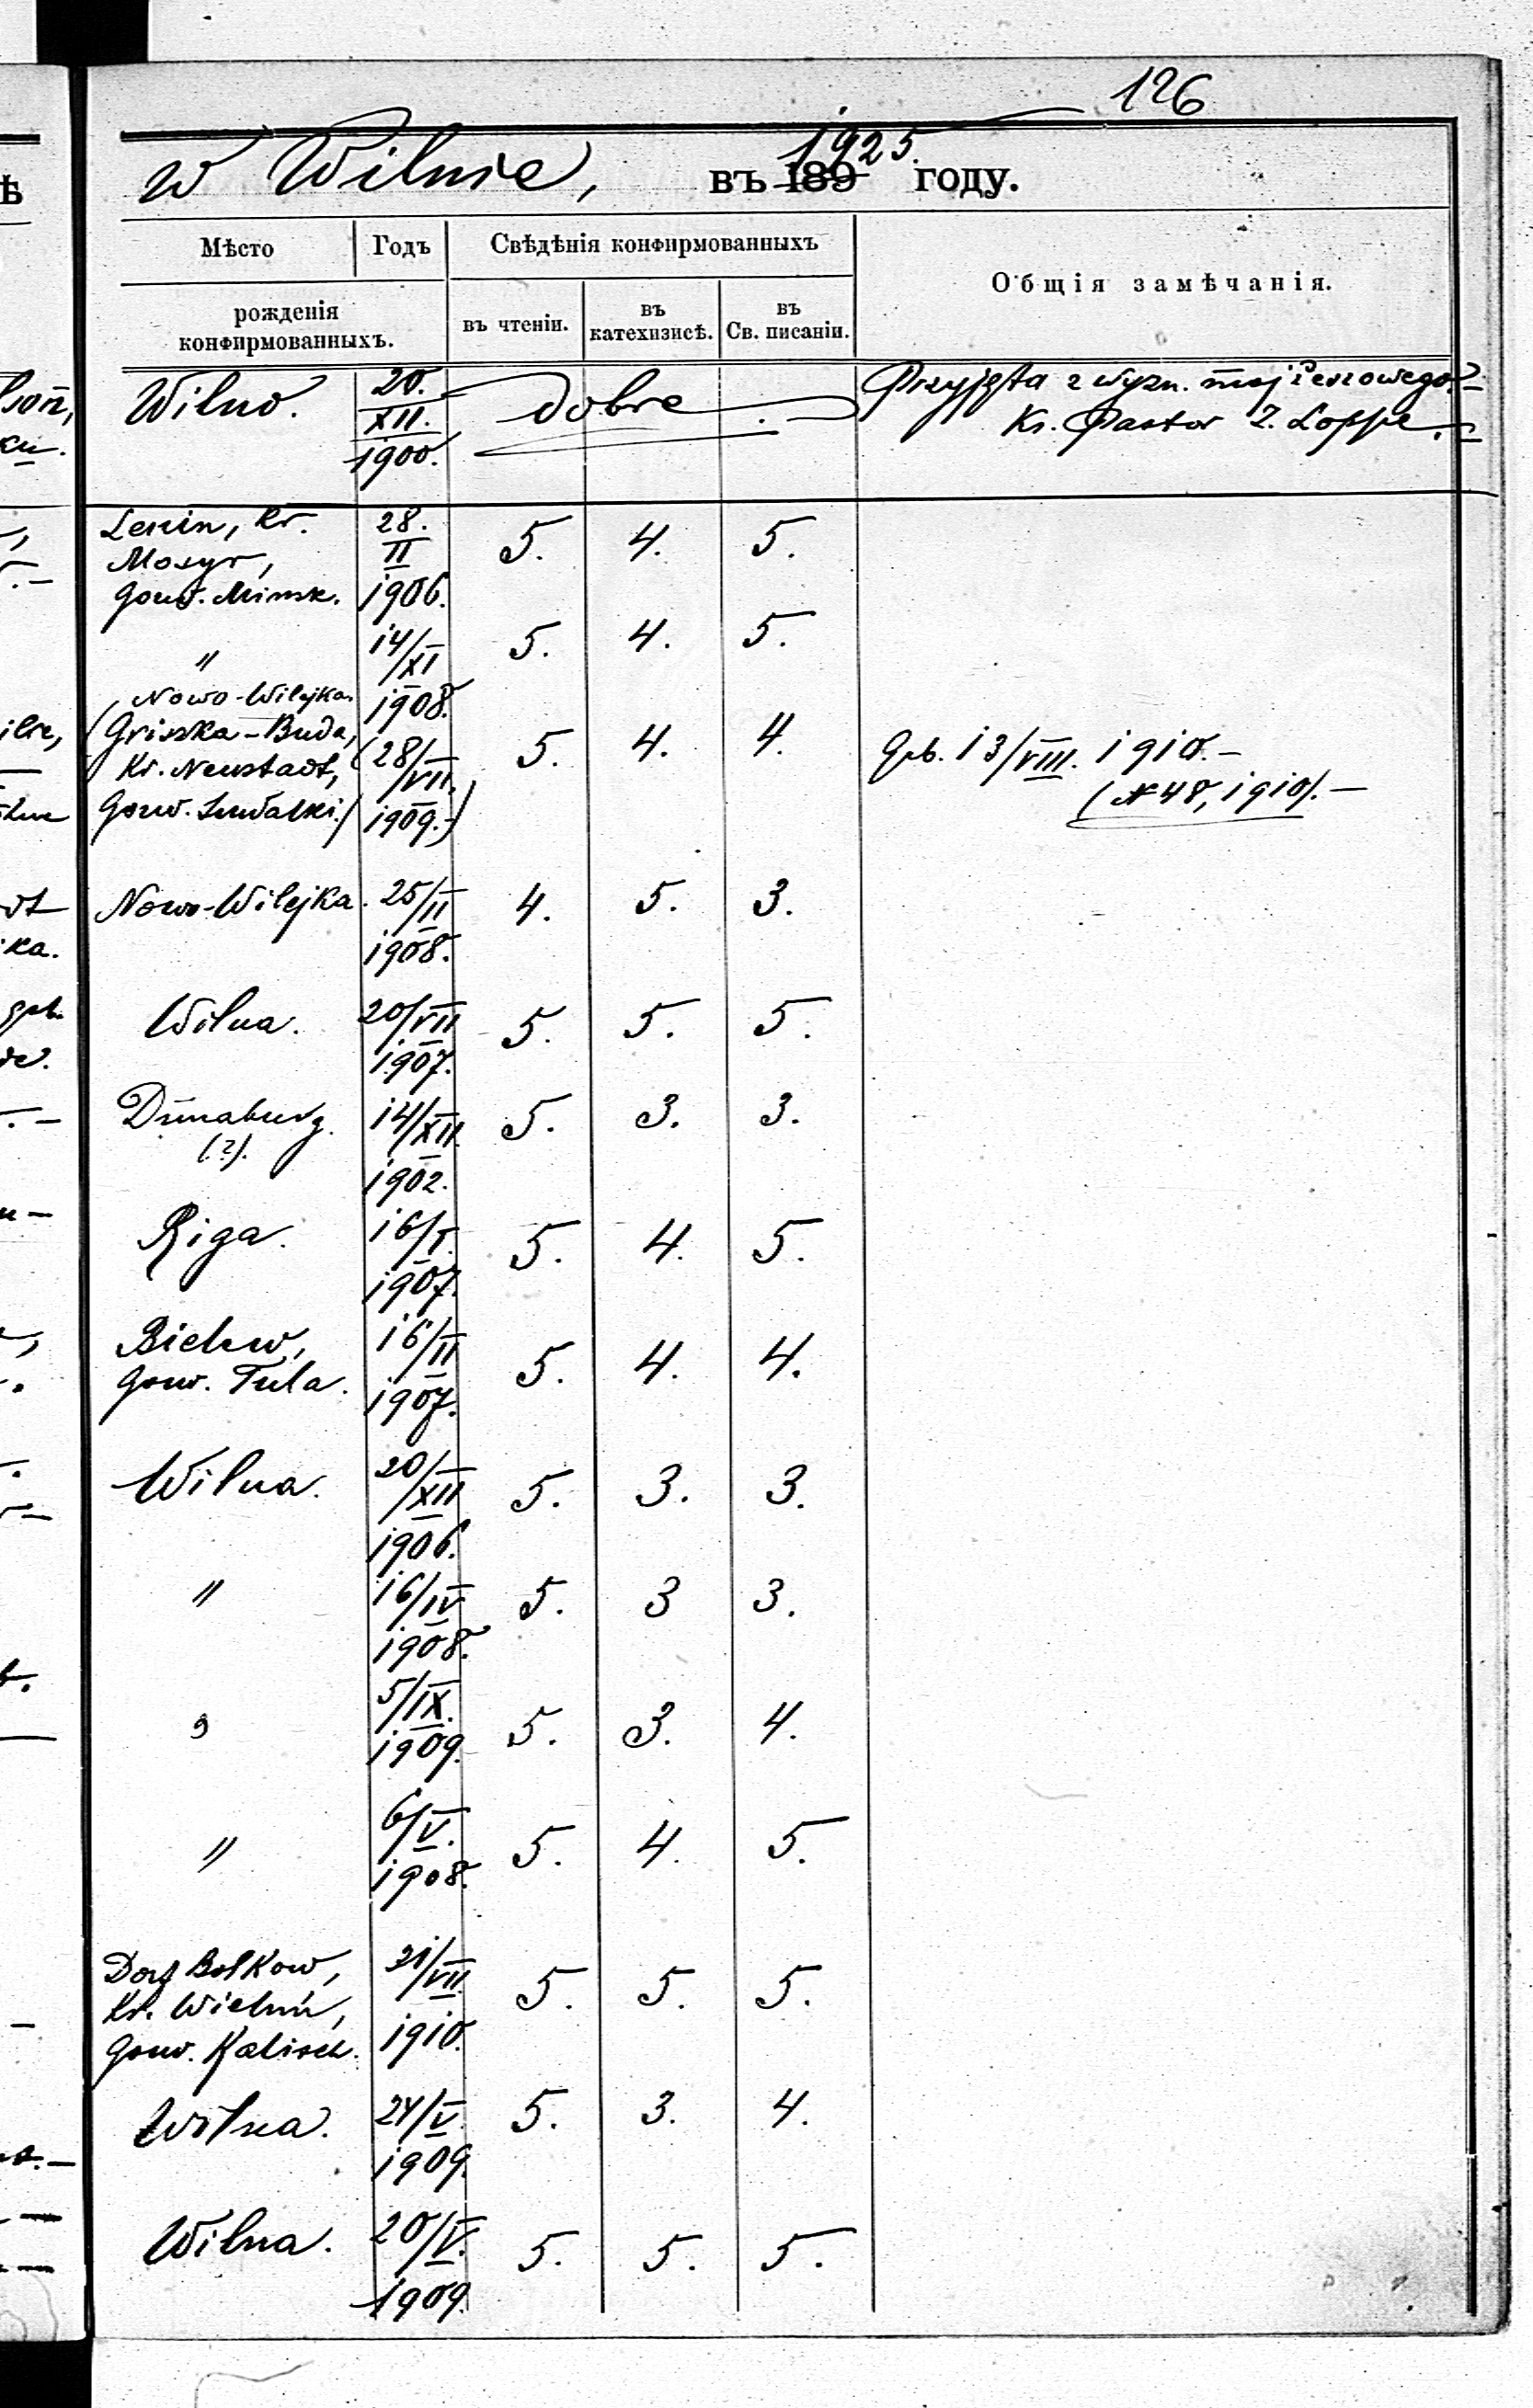 126
w Wilnie, въ 189 1925. году.
Мѣсто Годъ Свѣдѣнія конфирмованныхъ Общія замѣчанія.
рожденія
конфирмованныхъ.
въ чтеніи. въ катехизисѣ. въ Св. писаніи.
Wilno. 20. XII. 1900. dobre Przyjęta z wyzn. mojżeszowego.
Ks. Pastor Loppe.
Lenin, Kr. 28. II 1906. 5. 4. 5.
Mosyr,
Gouv. Minsk.
" 14/XI 1908. 5. 4. 5.
Nowo-Wilejka.
(Griszka-Buda, (28/VII. 1909.) 5. 4. 4. Geb. 13/VIII. 1910.-
Kr. Neustadt, (N 48, 1910).-
Gouv. Suwalki.)
Nowo-Wilejka. 25/II 1908. 4. 5. 3.
Wilna. 20/VII 1907. 5. 5. 5.
Dünaburg. 14/XII. 1902. 5. 3. 3.
(?).
Riga. 16/I. 1907. 5. 4. 5.
Bielew, 16/II 1907. 5. 4. 4.
Gouv. Tula.
Wilna. 20/XII 1906. 5. 3. 3.
" 16/IV 1908. 5. 3 3.
" 5/IX. 1909. 5. 3. 4.
" 6/V. 1908. 5. 4. 5.
Dorf Bolkow, 21/VII. 1910. 5. 5. 5.
Kr. Wielun,
Gouv. Kalisch.
Wilna. 24/V. 1909. 5. 3. 4.
Wilna. 20/V. 1909. 5. 5. 5.